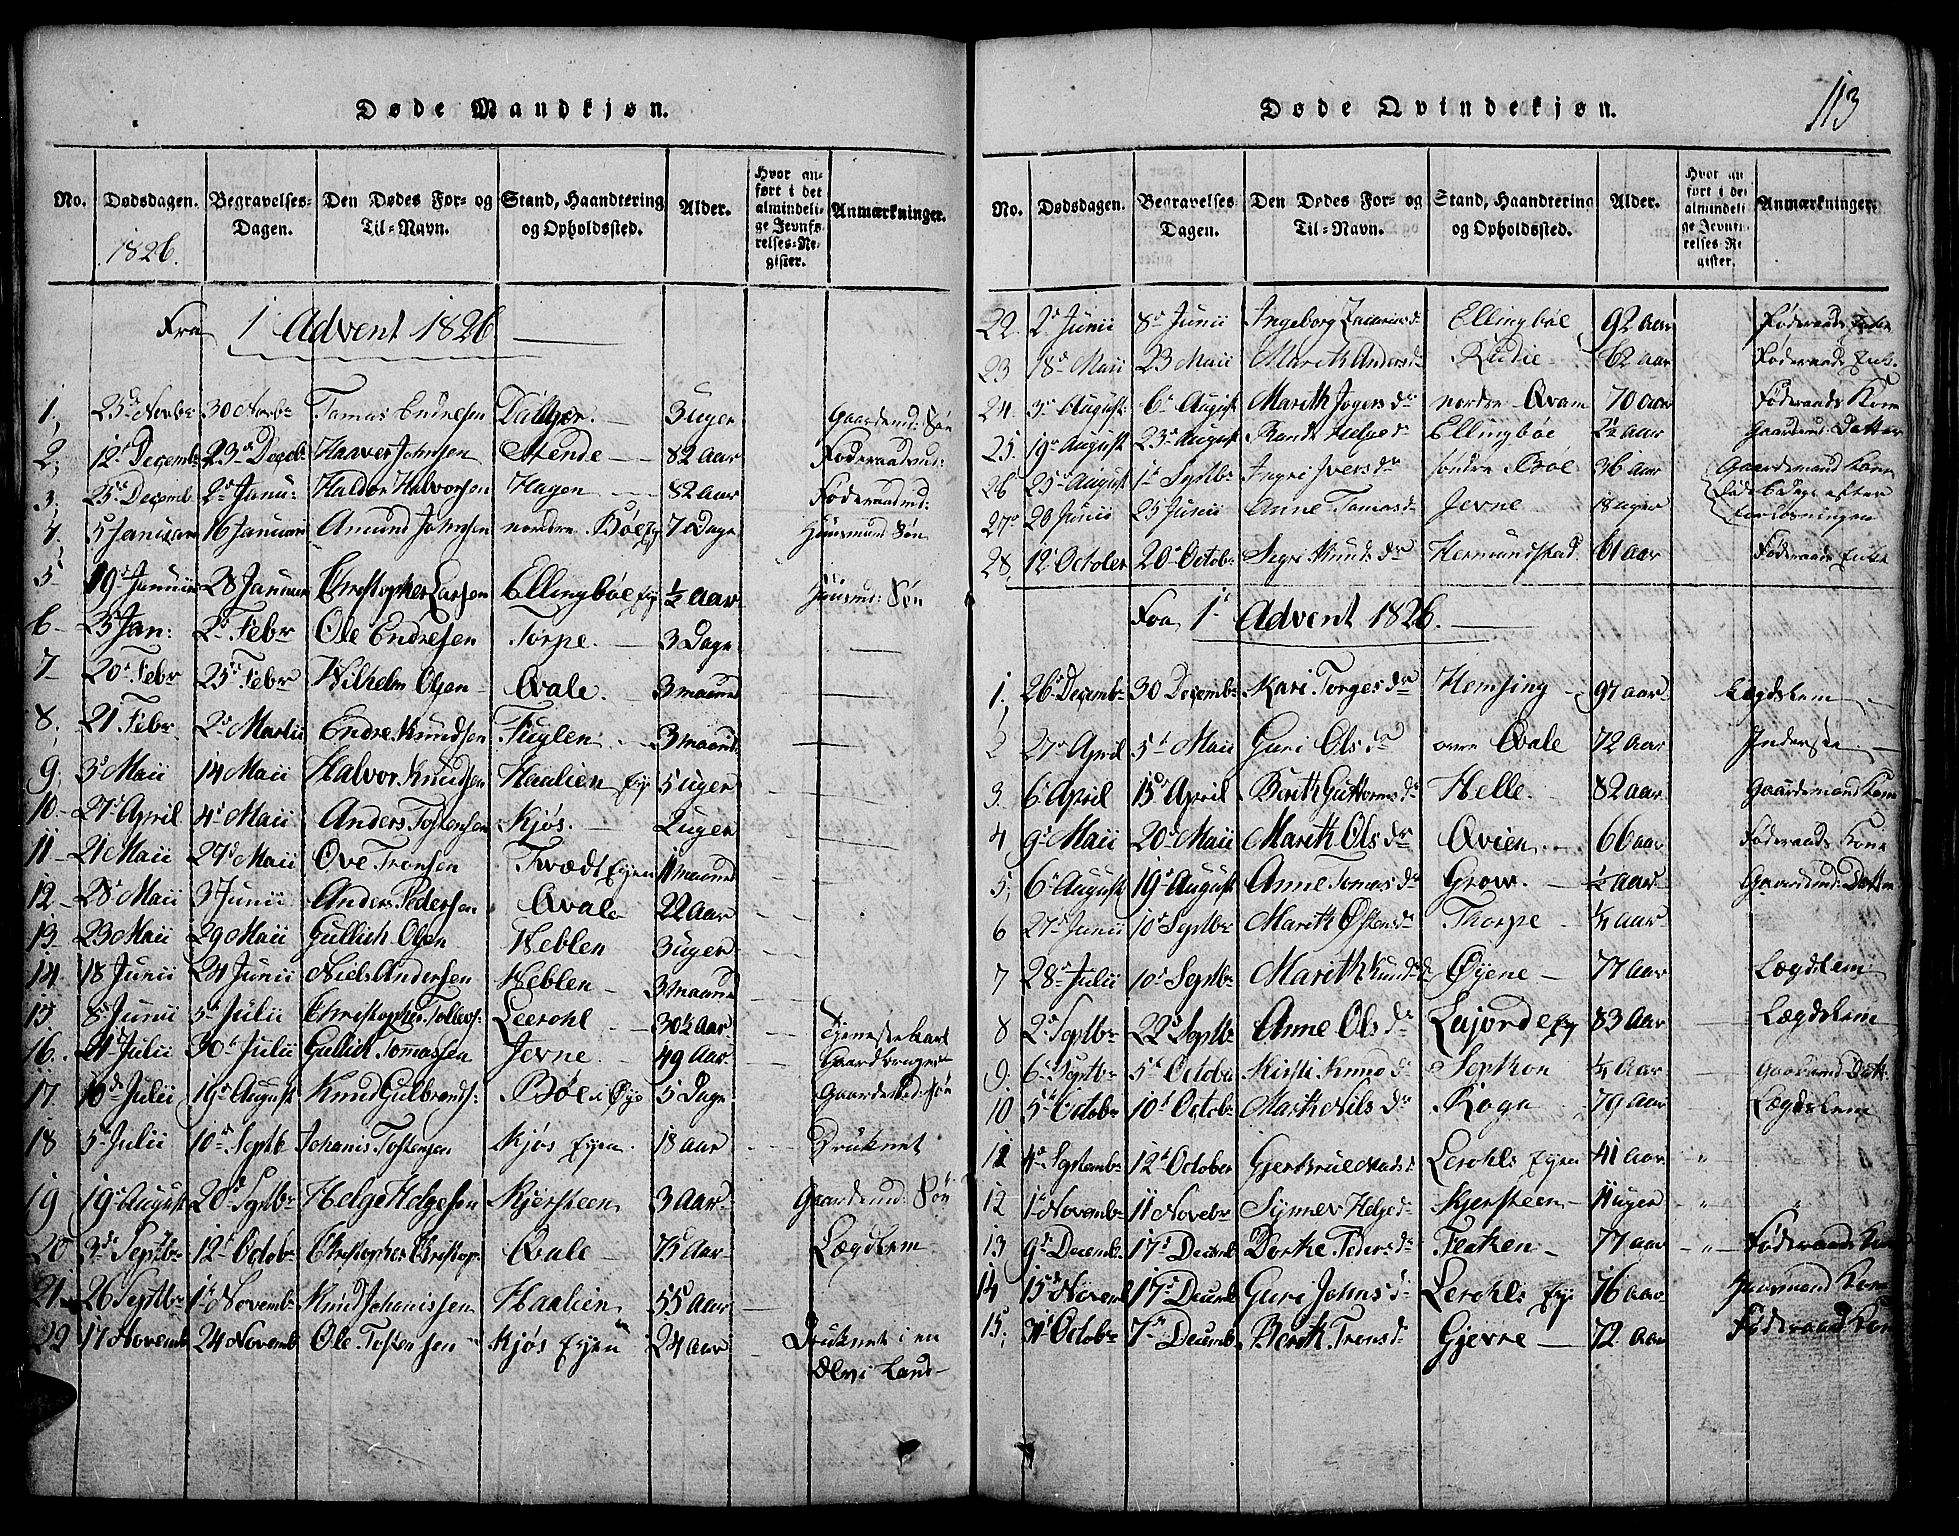 Døde Mandkjøn.
No. Dødsdagen. Begravelses-Dagen. Den Dødes For- og Til-Navn. Stand, Haandtering og Opholdssted. Alder. Hvor anført i det almindelige Jevnførelses-Register. Anmærkninger.
1826.
Fra 1 Advent 1826
1, 23 Novbr 30 Novbr Tomas Endresen 3 Uger Gaardmd: Søn
2, 12 Decemb 23 Decbr Haaver Johnsen Stende 82 aar
3, 25 Decemb 2 Janu: Haldor Halvorsen Hagen 82 aar
4. 5 Januar 16 Januar Amund Johnsen nordre Bøe Ey 7 Dage Huusmand Søn
5 19 Januii 28 Januar Christopher Larsen Ellingbøe Ey ½ aar Huusmd: Søn
6 25 Jan: 2 Febr Ole Endresen Torpe 3 Dage
7 20 Febr 25 Febr Wilhelm Olsen Qvale 3 maaned
8, 21 Febr 2 Martii Endre Knudsen Fuglen 3 maaned
9, 3 Maii 14 Maii Halvor Knudsen Haalien Ey 5 uger
10 27 April 4 Maii Anders Tostensen Kjøs 2 uger
11 21 Maii 27 Maii Ove Tronsen Tvædt Eyen 11 maaned
12 28 Maii 3 Junii Anders Pedersen Qvale 22 aar
13 23 Maii 29 Maii Gullich Olsen Veblen 3 uger
14 18 Junii 24 Junii Niels Andersen Veblen 3 maaned
15 8 Junii 5 Julii Christopher Tollevs: Leerohl 30½ aar Tjeneste Karl
16. 21 Julii 30 Julii Gullich Tomassen Jevne 49 aar Gaardbruger
17. 10 Julii 19 August Knud Gulbrands: Bøe 5 Dage Søn
18 5 Julii 10 Septb Johanis Tostensen Kjøs Eyen 18 aar Druknet
19 19 August 20 Septbr Helge Helgesen Kjersteen 3 aar Gaardmd: Søn
20 3 Septbr 12 Octob Christopher Christop: Qvale 75 aar Lægdslem
21 26 Septbr 1 Novemb Knud Johanissen Haalien 55 aar
22 17 Novemb 24 Novemb Ole Tostensen Kjøs Eyen 24 aar Druknet i en
Elv i Land
Døde Qvindekjøn.
113
No. Dødsdagen. Begravelses Dagen. Den Dødes For- og Til-Navn. Stand, Haandtering og Opholdssted. Alder. Hvor anført i det almindelige Jevnførelses Register. Anmærkninger.
22. 2 Junii 8 Junii Ingeborg Zacarias d Ellingbøe 92 aar Føderaads Enke
23 18 Maii 23 Maii Marith Anders d Rudie 62 aar Føderaads Enke
24. 3 August 6 August Marith Jogers dr nordre Qvam 70 aar Føderaads Kone
25. 19 August 23 August Randi Helge d Ellingbøe 2½ aar Gaardmd: Datter
26 25 August 1 Septbr Ingri Ivers dr søndre Bøe 36 aar Gaardmand Kone
døde 6 Dage efter
27 20 Junii 25 Junii Anne Tomas d Jevne 18 uger
Forløsningen
28, 12 October 20 Octob Segri Knuds dr Hermundstad 61 aar Føderaads Enke
Fra 1 Advent 1826.
1, 26 Decemb 30 Decemb Kari Torges dr Hemsing 97 aar Lægdslem
2 27 April 5 Maii Guri Ols dr øvre Qvale 72 aar Inderste
3. 6 April 15 April Berith Guttorms d Helle 82 aar Gaardmand Kone
4 9 Maii 20 Maii Marith Ols dr Qvien 66 aar Føderaads Kone
5, 6 August 19 August Anne Tomas dr Grow ½ aar Gaardmd: Datter
6 27 Junii 10 Septbr Marith Østens dr Thorpe ¼ aar
7 28 Julii 10 Septbr Marith Knuds d Øyene 77 aar Lægdslem
8 2 Septbr 22 Septbr Anne Ols dr Lajorde Ey 83 aar Lægdslem
9. 6 Septbr 5 October Kirsti Knud d ¼ aar Gaardmand Datt
10 5 Octobr 10 Octobr Marthe Nils dr 79 aar Lægdslem
11 4 Septemb 12 October Gjertrud Lerohls Eyen 41 aar "
12 1 Novemb 11 Novebr Synnev Helge d Kjersteen 11 uger "
13 9 Decemb 17 Decemb Dorthe Peders dr 77 aar " Føderaads Kone
14 15 Novemb 17 Decemb Guri Johns d Lerohls Eye 76 aar Huusmand Kone
15, 31 Octobr 7 Decemb Berith Trons d Gjevre 72 aar Føderaad Kone